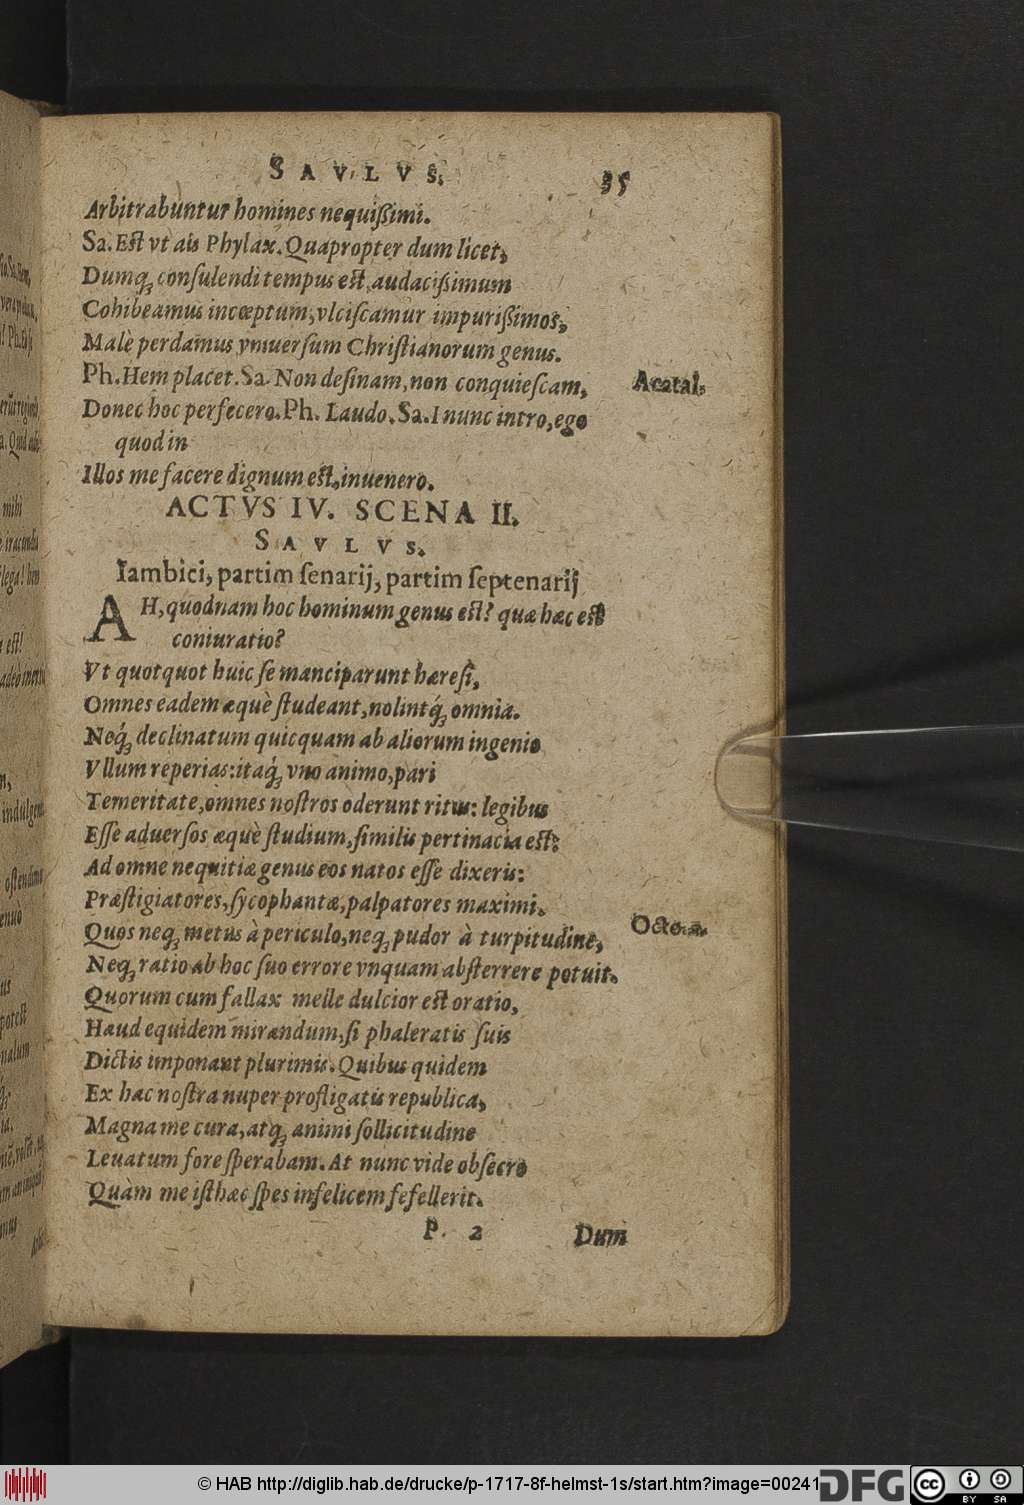 SAVLVS. 35
Arbitrabuntur homines nequißimi.
Sa. Est vt ais Phylax. Quapropter dum licet,
Dumq́; consulendi tempus est, audacißimum
Cohibeamus incœptum, vlciscamur impurißimos,
Malè perdamus vniuersum Christianorum genus.
Ph. Hem placet. Sa. Non desinam, non conquiescam, Acatal.
Donec hoc perfecero. Ph. Laudo. Sa. I nunc intro, ego
quod in
Illos me facere dignum est, inuenero.
ACTVS IV. SCENA II.
SAVLVS.
Iambici, partim senarij, partim septenarij
AH, quodnam hoc hominum genus est? quæ hæc est
coniuratio?
Vt quotquot huic se manciparunt hæresi,
Omnes eadem æquè studeant, nolintq́; omnia.
Neq́; declinatum quicquam ab aliorum ingenio
Vllum reperias: itaq́; vno animo, pari
Temeritate, omnes nostros oderunt ritus: legibus
Esse aduersos æquè studium, similis pertinacia est:
Ad omne nequitiæ genus eos natos esse dixeris:
Præstigiatores, sycophantæ, palpatores maximi.
Quos neq; metus à periculo, neq; pudor à turpitudine, Octo.a.
Neq; ratio ab hoc suo errore vnquam absterrere potuit.
Quorum cum fallax melle dulcior est oratio,
Haud equidem mirandum, si phaleratis suis
Dictis imponant plurimis. Quibus quidem
Ex hac nostra nuper profligatis republica,
Magna me cura, atq; animi sollicitudine
Leuatum fore sperabam. At nunc vide obsecro
Quàm me isthæc spes infelicem fefellerit.
P. 2 Dum
© HAB http://diglib.hab.de/drucke/p-1717-8f-helmst-1s/start.htm?image=00241
DFG
cc BY SA